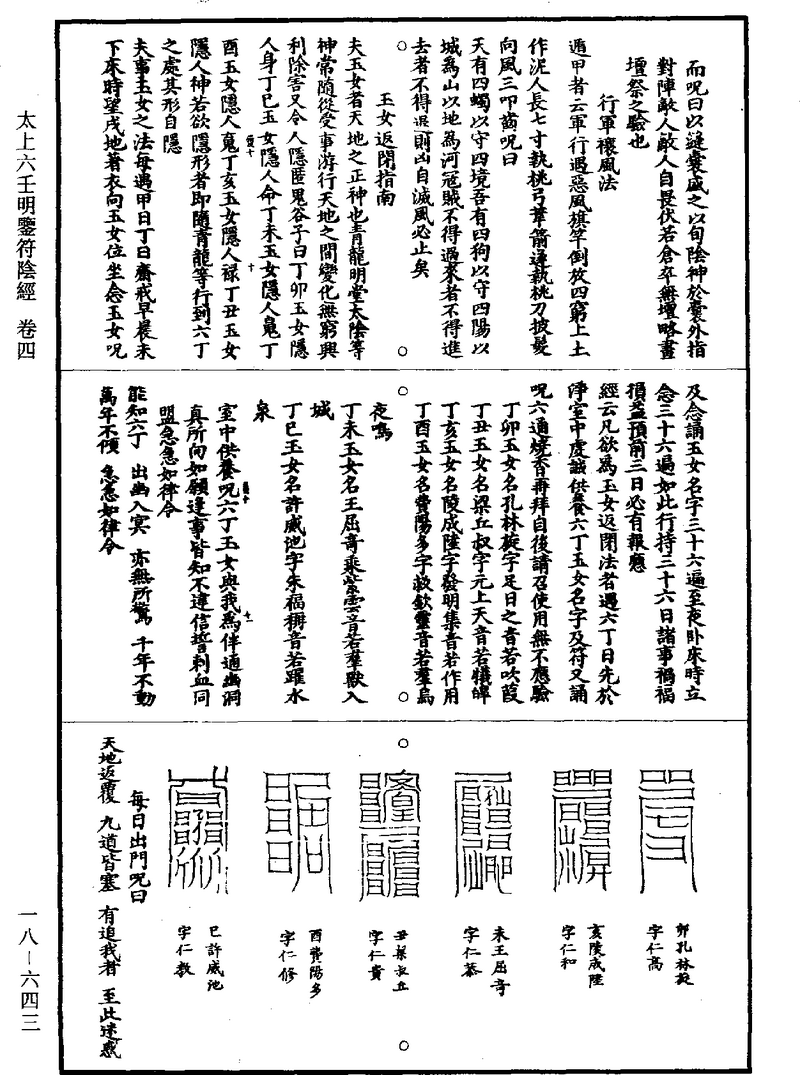 而呪曰以縫囊盛之以旬陰神於囊外指
對陣敵人敵人自畏伏若倉卒無壇略畫
壇祭之驗也
行軍禳風法
遁甲者云軍行遇惡風旗竿倒放四窮上土
作泥人長七寸執桃弓葦箭逆執桃刀披髮
向風三叩齒呪曰
天有四蠋以守四境吾有四狗以守四陽以
城為山以地為河寇賊不得過來者不得進
去者不得退則凶自滅風必止矣
玉女返閉指南
夫玉女者天地之正神也青龍明堂太陰等
神常隨從受事游行天地之間變化無窮興
利除害又令人隱匿鬼谷子曰丁卯玉女隱
人身丁巳玉女隱人命丁未玉女隱人魂丁
酉玉女隱人魄丁亥玉女隱人祿丁丑玉女
隱人神若欲隱形者即隨青龍等行到六丁
之處其形自隱
夫事玉女之法每遇甲日丁日齋戒早晨未
下床時望戌地著衣向玉女位坐念玉女呪
及念誦玉女名字三十六遍至夜卧床時立
念三十六遍如此行持三十六日諸事禍福
損益預前三日必有報應
經云凡欲為玉女返閉法者遇六丁日先於
淨室中虔誠供養六丁玉女名字及符又誦
呪六通燒香再拜自後請召使用無不應驗
丁卯玉女名孔林旋字足日之音若吹葭
丁丑玉女名梁丘叔字元上天音若犢犤
丁亥玉女名陵成陸字發明集音若作用
丁酉玉女名費陽多字叔欽靈音若羣烏
夜鳴
丁未玉女名王屈奇乘紫雲音若羣獸入
城
丁巳玉女名許威池字朱福稱音若躍水
泉
室中供養呪六丁玉女與我為伴通幽洞
真所向如願逢事皆知不違信誓刺血同
盟急急如律令
能知六丁 出幽入冥 亦無所驚 千年不動
萬年不傾 急急如律令
卯孔林旋
字仁高
亥陵成陸
字仁和
未王屈奇
字仁恭
丑梁叔丘
字仁貴
酉費陽多
字仁修
巳許威池
字仁敎
每日出門呪曰
天地返覆 九道皆塞 有追我者 至此迷惑
太上六壬明鑒符陰經 卷四
一八—六四三